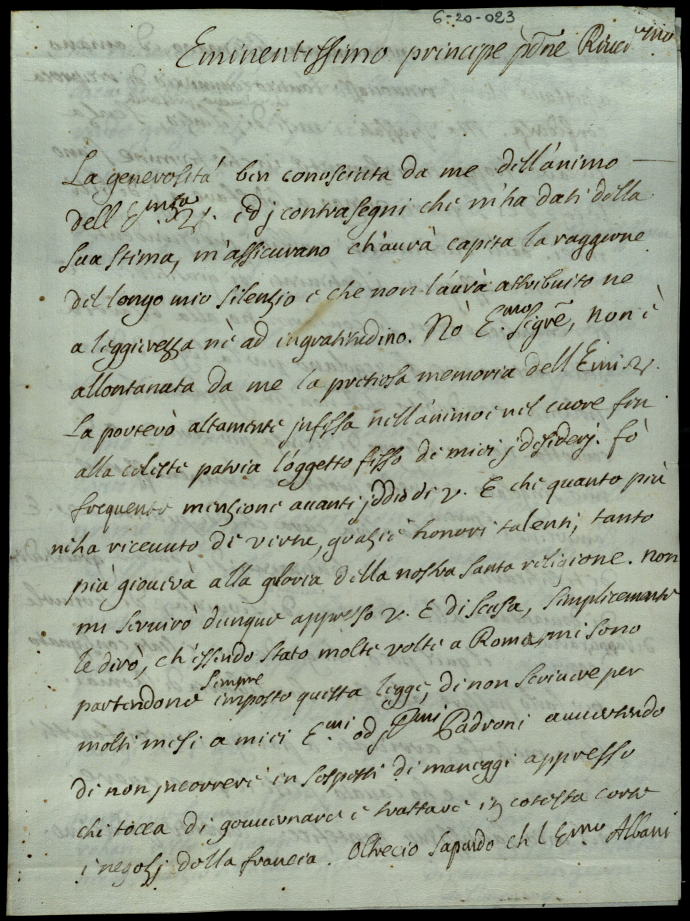 6-20-023
Eminentissimo principe pdne
La generosità ben conosciuta da me dell'animo
dell E.mza V. ed j contrasegni che m'ha dati della
sua stima, m'assicurano ch'aurà capita la raggione
del longo mio silenzio e che non l'aurà attribuito ne
a leggierezza nè ad ingratitudine. Nò E.mo Sigre, non è
allontanata da me la pretiosa memoria dell Emi V.
La porterò altamente infissa nell'animo e nel cuore fin
alla celeste patria l'oggetto fisso de miei desiderj. fò
frequente menzione auanti iddio de V. E che quanto più
n'ha riceuuto di virtu, grazie honori talenti, tanto
più gioueva alla gloria della nostra santa religione. non
mi seruirò dunque appresso V. E di scusa, simplicemente
le dirò, ch'essendo stato molte volte a Roma, mi sono
partendone sempre imposto questa legge, di non scriuere per
molti mesi a miei E.mi od Padroni auuertendo
di non incorrere in sospetti di maneggi appresso
chi tocca di gouuernare e trattare in cotesta corte
i negozj della francia. Oltrecio sapendo ch l E.mo Albani